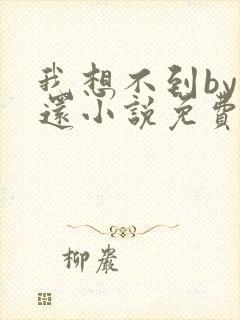 我想不到by
還小説免費
柳巖